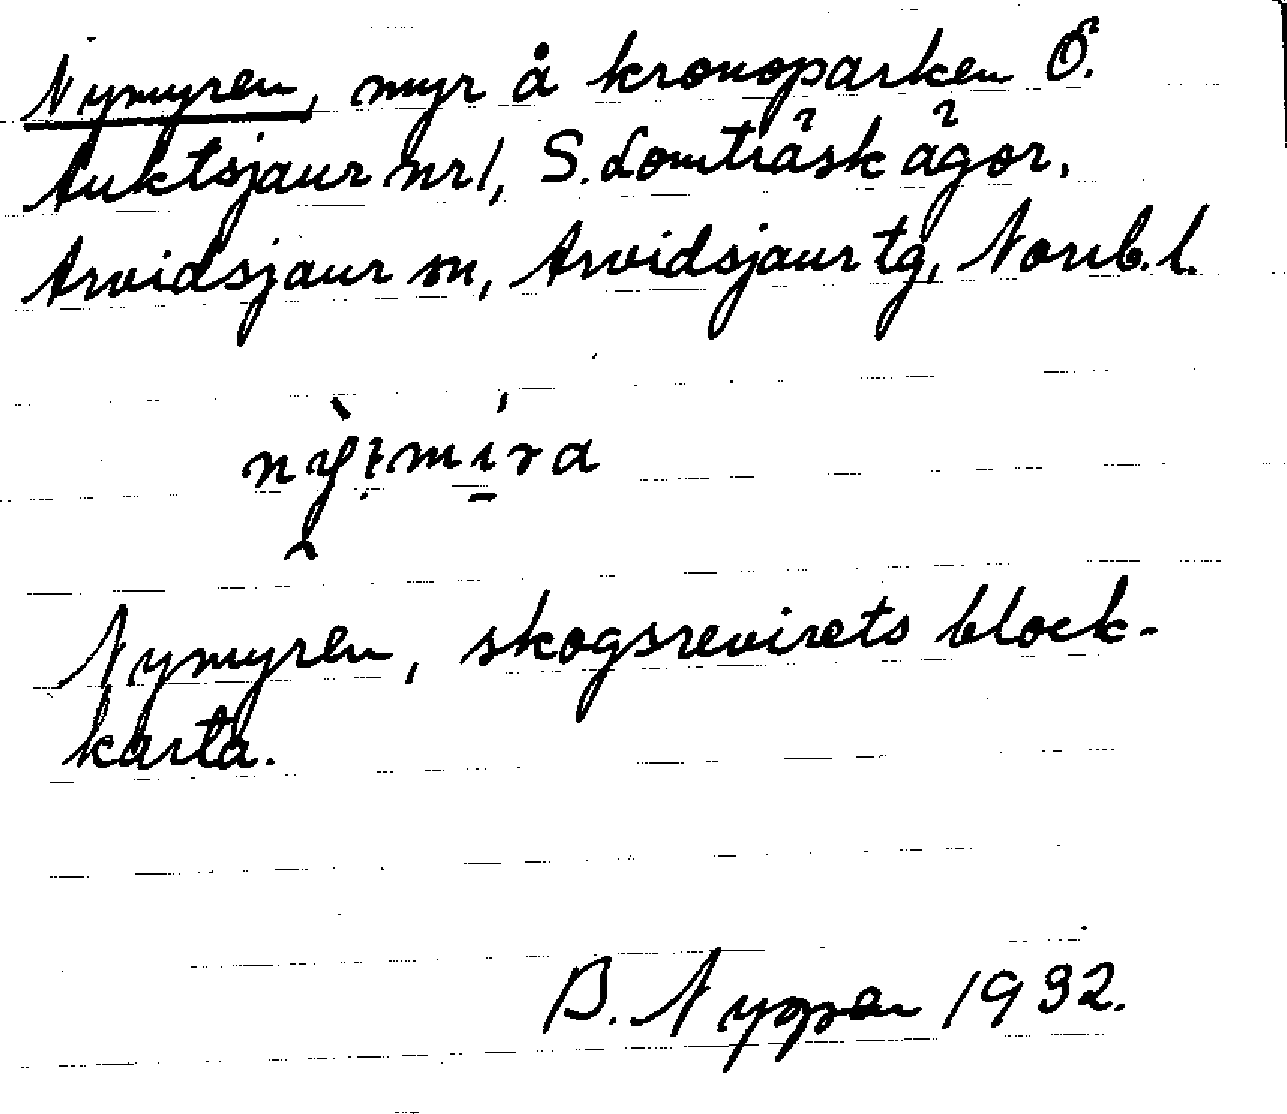 Nymyren, myr å kronoparken Ö.
Auktsjaur nr 1, S. Lomträsk ägor,
Arvidsjaur sn, Arvidsjaur tg, Norrb. l.
Nymyren, skogsrevirets block-
karta.
B. Nygren 1932.